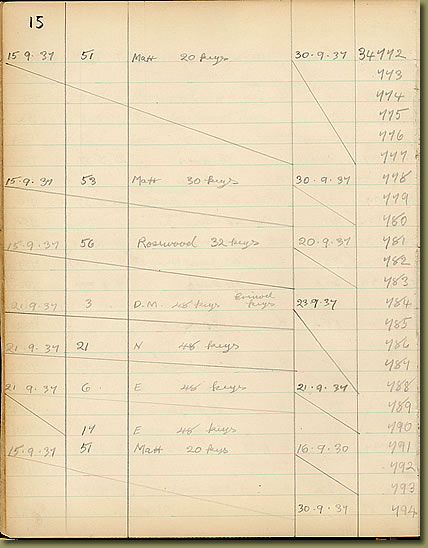 15
15.9.37 51 Matt 20 keys 30.9.37 34772
773
774
775
776
777
15.9.37 53 Matt 30 keys 30.9.37 778
779
780
15.9.37 56 Rosewood 32 keys 20.9.37 781
782
783
21.9.37 3 D.M. 48 keys keys 23.9.37 784
785
21.9.37 21 N 48 keys 786
787
21.9.37 6. E 48 keys 21.9.37 788
789
14 E 48 keys 790
15.9.37 51 Matt 20 keys 16.9.30 791
792
793
30.9.37 794